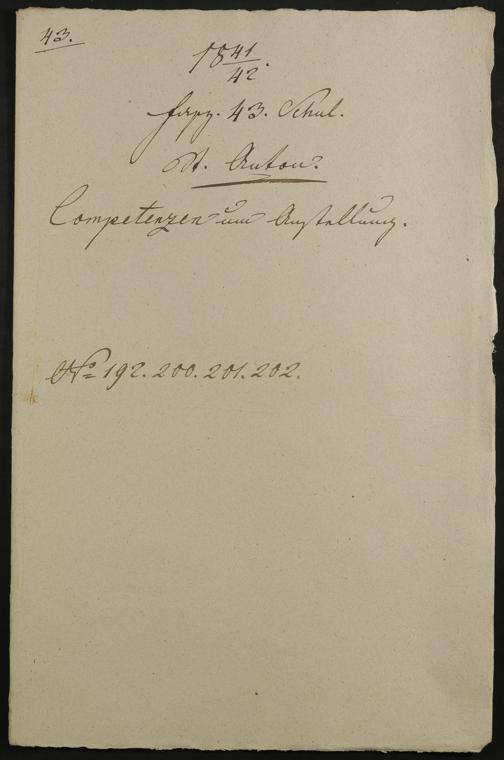 43.
18 41/42.
Fasz. 43. Schul.
St. Anton.
Competenzen um Anstellung.
No 192. 200. 201. 202.